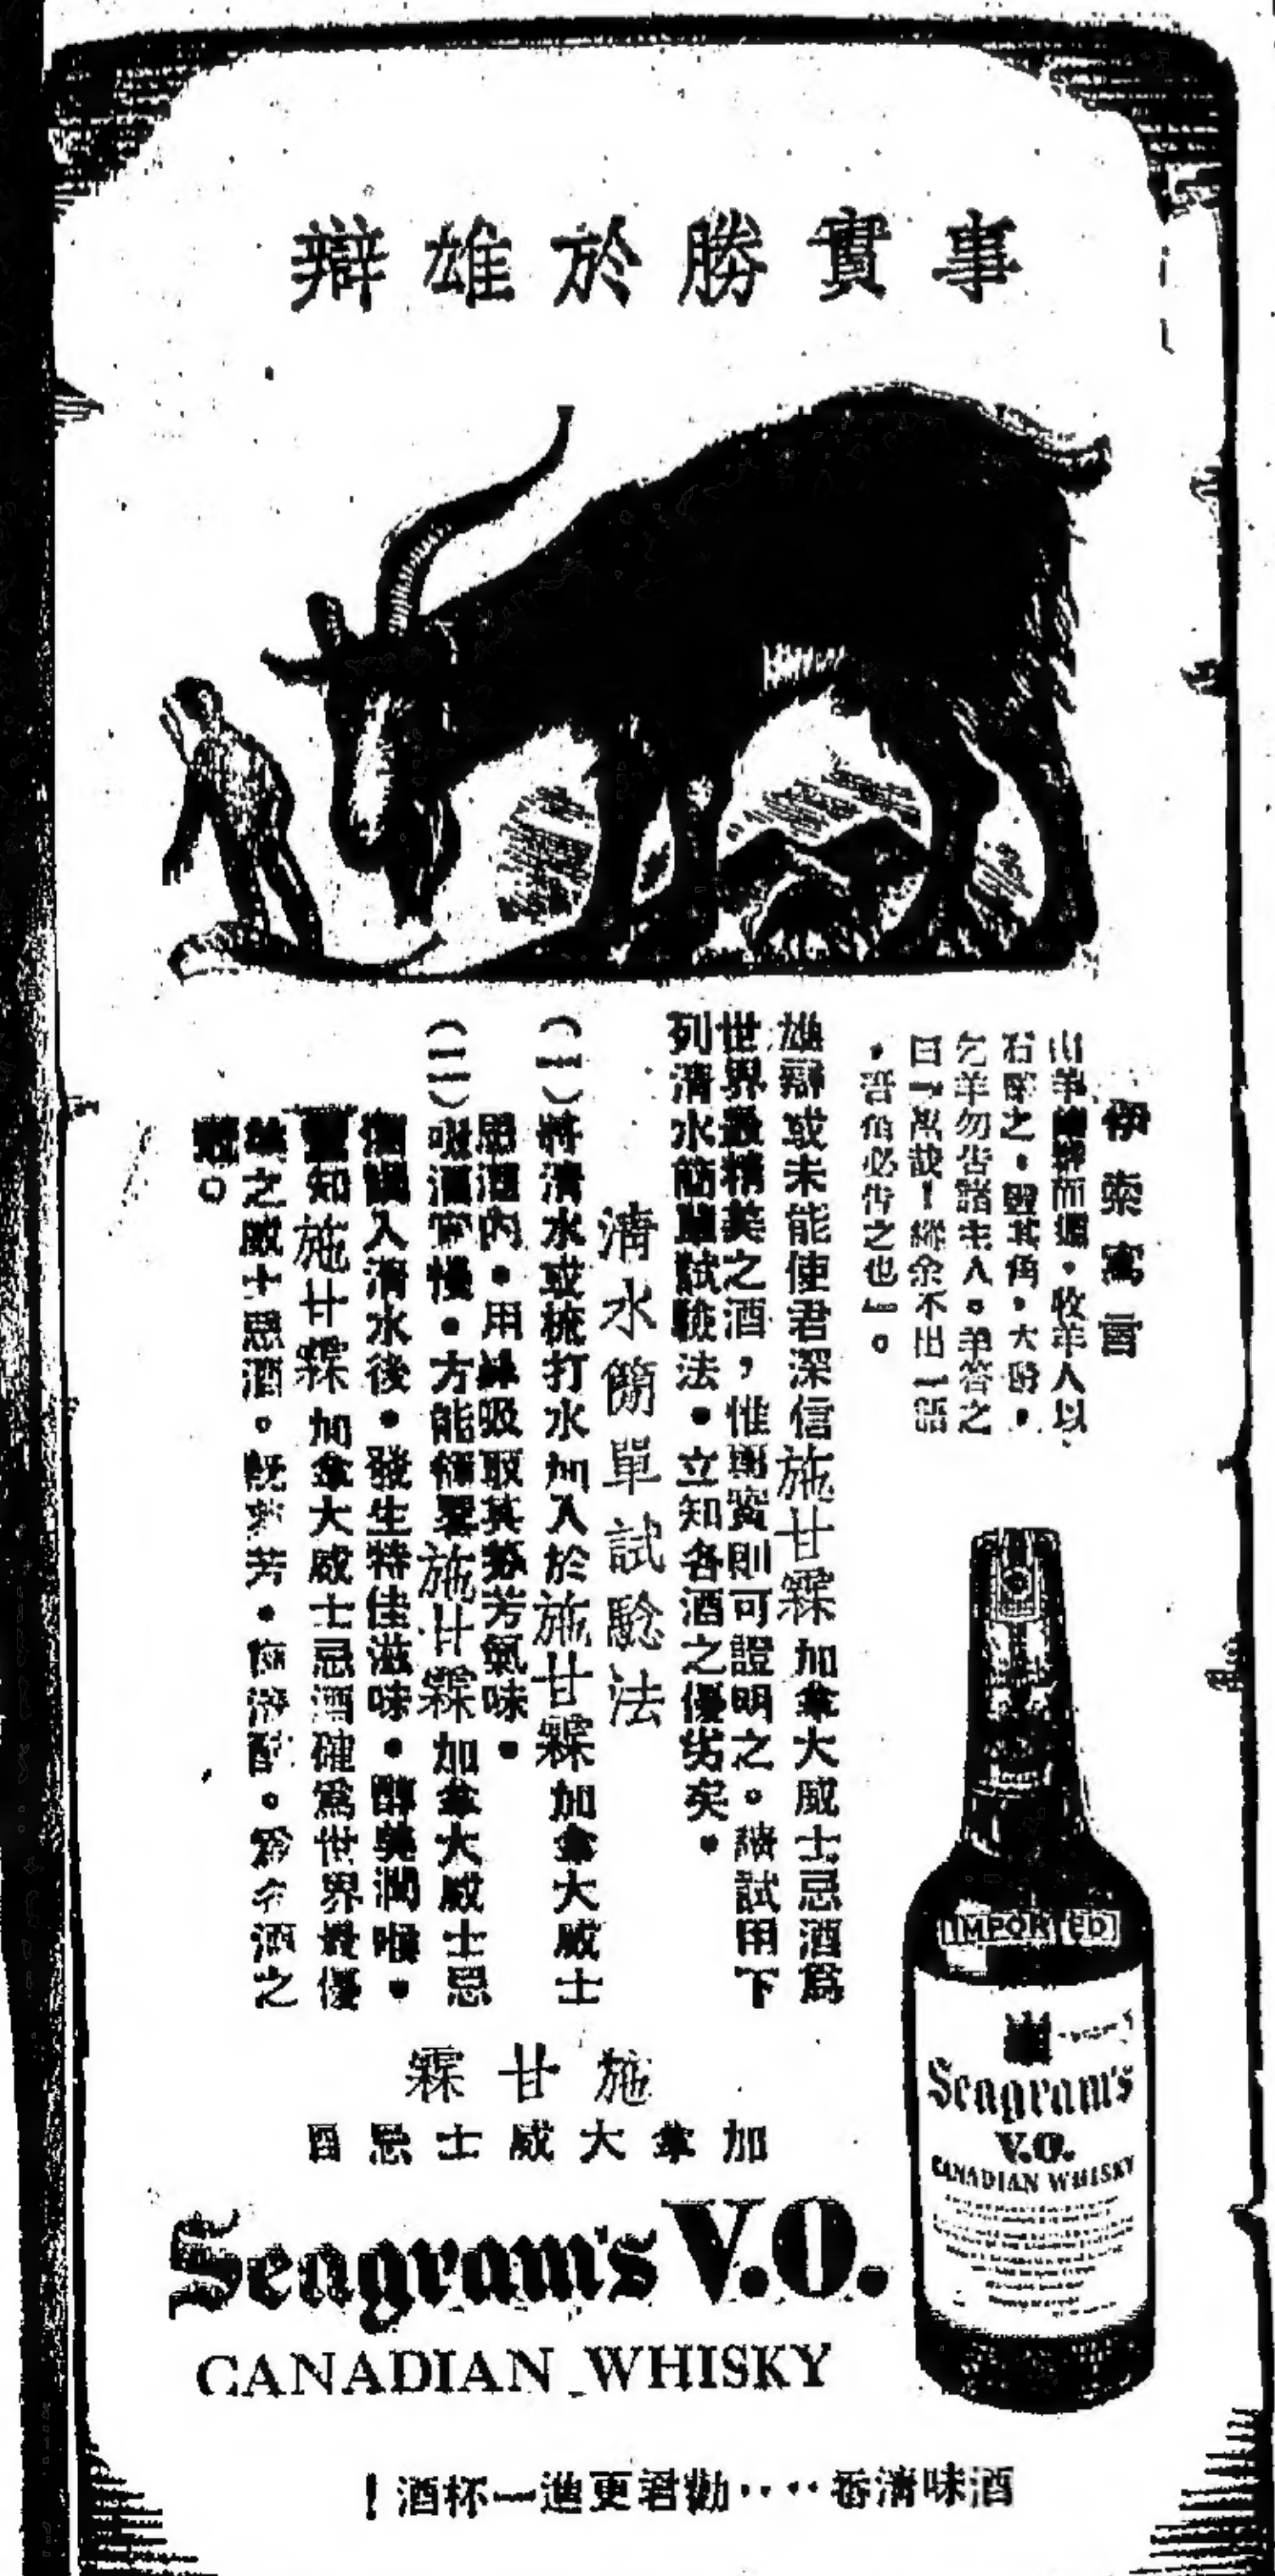 事實勝於雄辯
伊索寓言
山羊而過，牧羊人以
石擊之，毀其角，大
乞羊勿告諸主人。羊答之
曰「哉！縱余不出一語
，吾角必告之也」。
雄辯或未能使君深信施甘霖加拿大威士忌酒爲
世界最精美之酒，惟事實則可證明之。請試用下
列清水簡單試驗法・立知各酒之優劣矣・
清水簡單試驗法
（一）將清水或梳打水加入於施甘霖加拿大威士
忌酒內・用鼻吸取其芬芳氣味・
（二）啜酒宜慢・方能領畧施甘霖加拿大威士忌
酒調入清水後・發生特佳滋味・醇美潤喉・
知施甘霖加拿大威士忌酒確爲世界最優
之威士忌酒。既芬芳・。爲名酒之
冠。
施甘霖
加拿大威士忌酒
Seagram's V.O.
CANADIAN WHISKY
IMPORTED
Seagram's
V.O.
CANADIAN WHISKY
酒味清香‥‥勸君更進一杯酒！